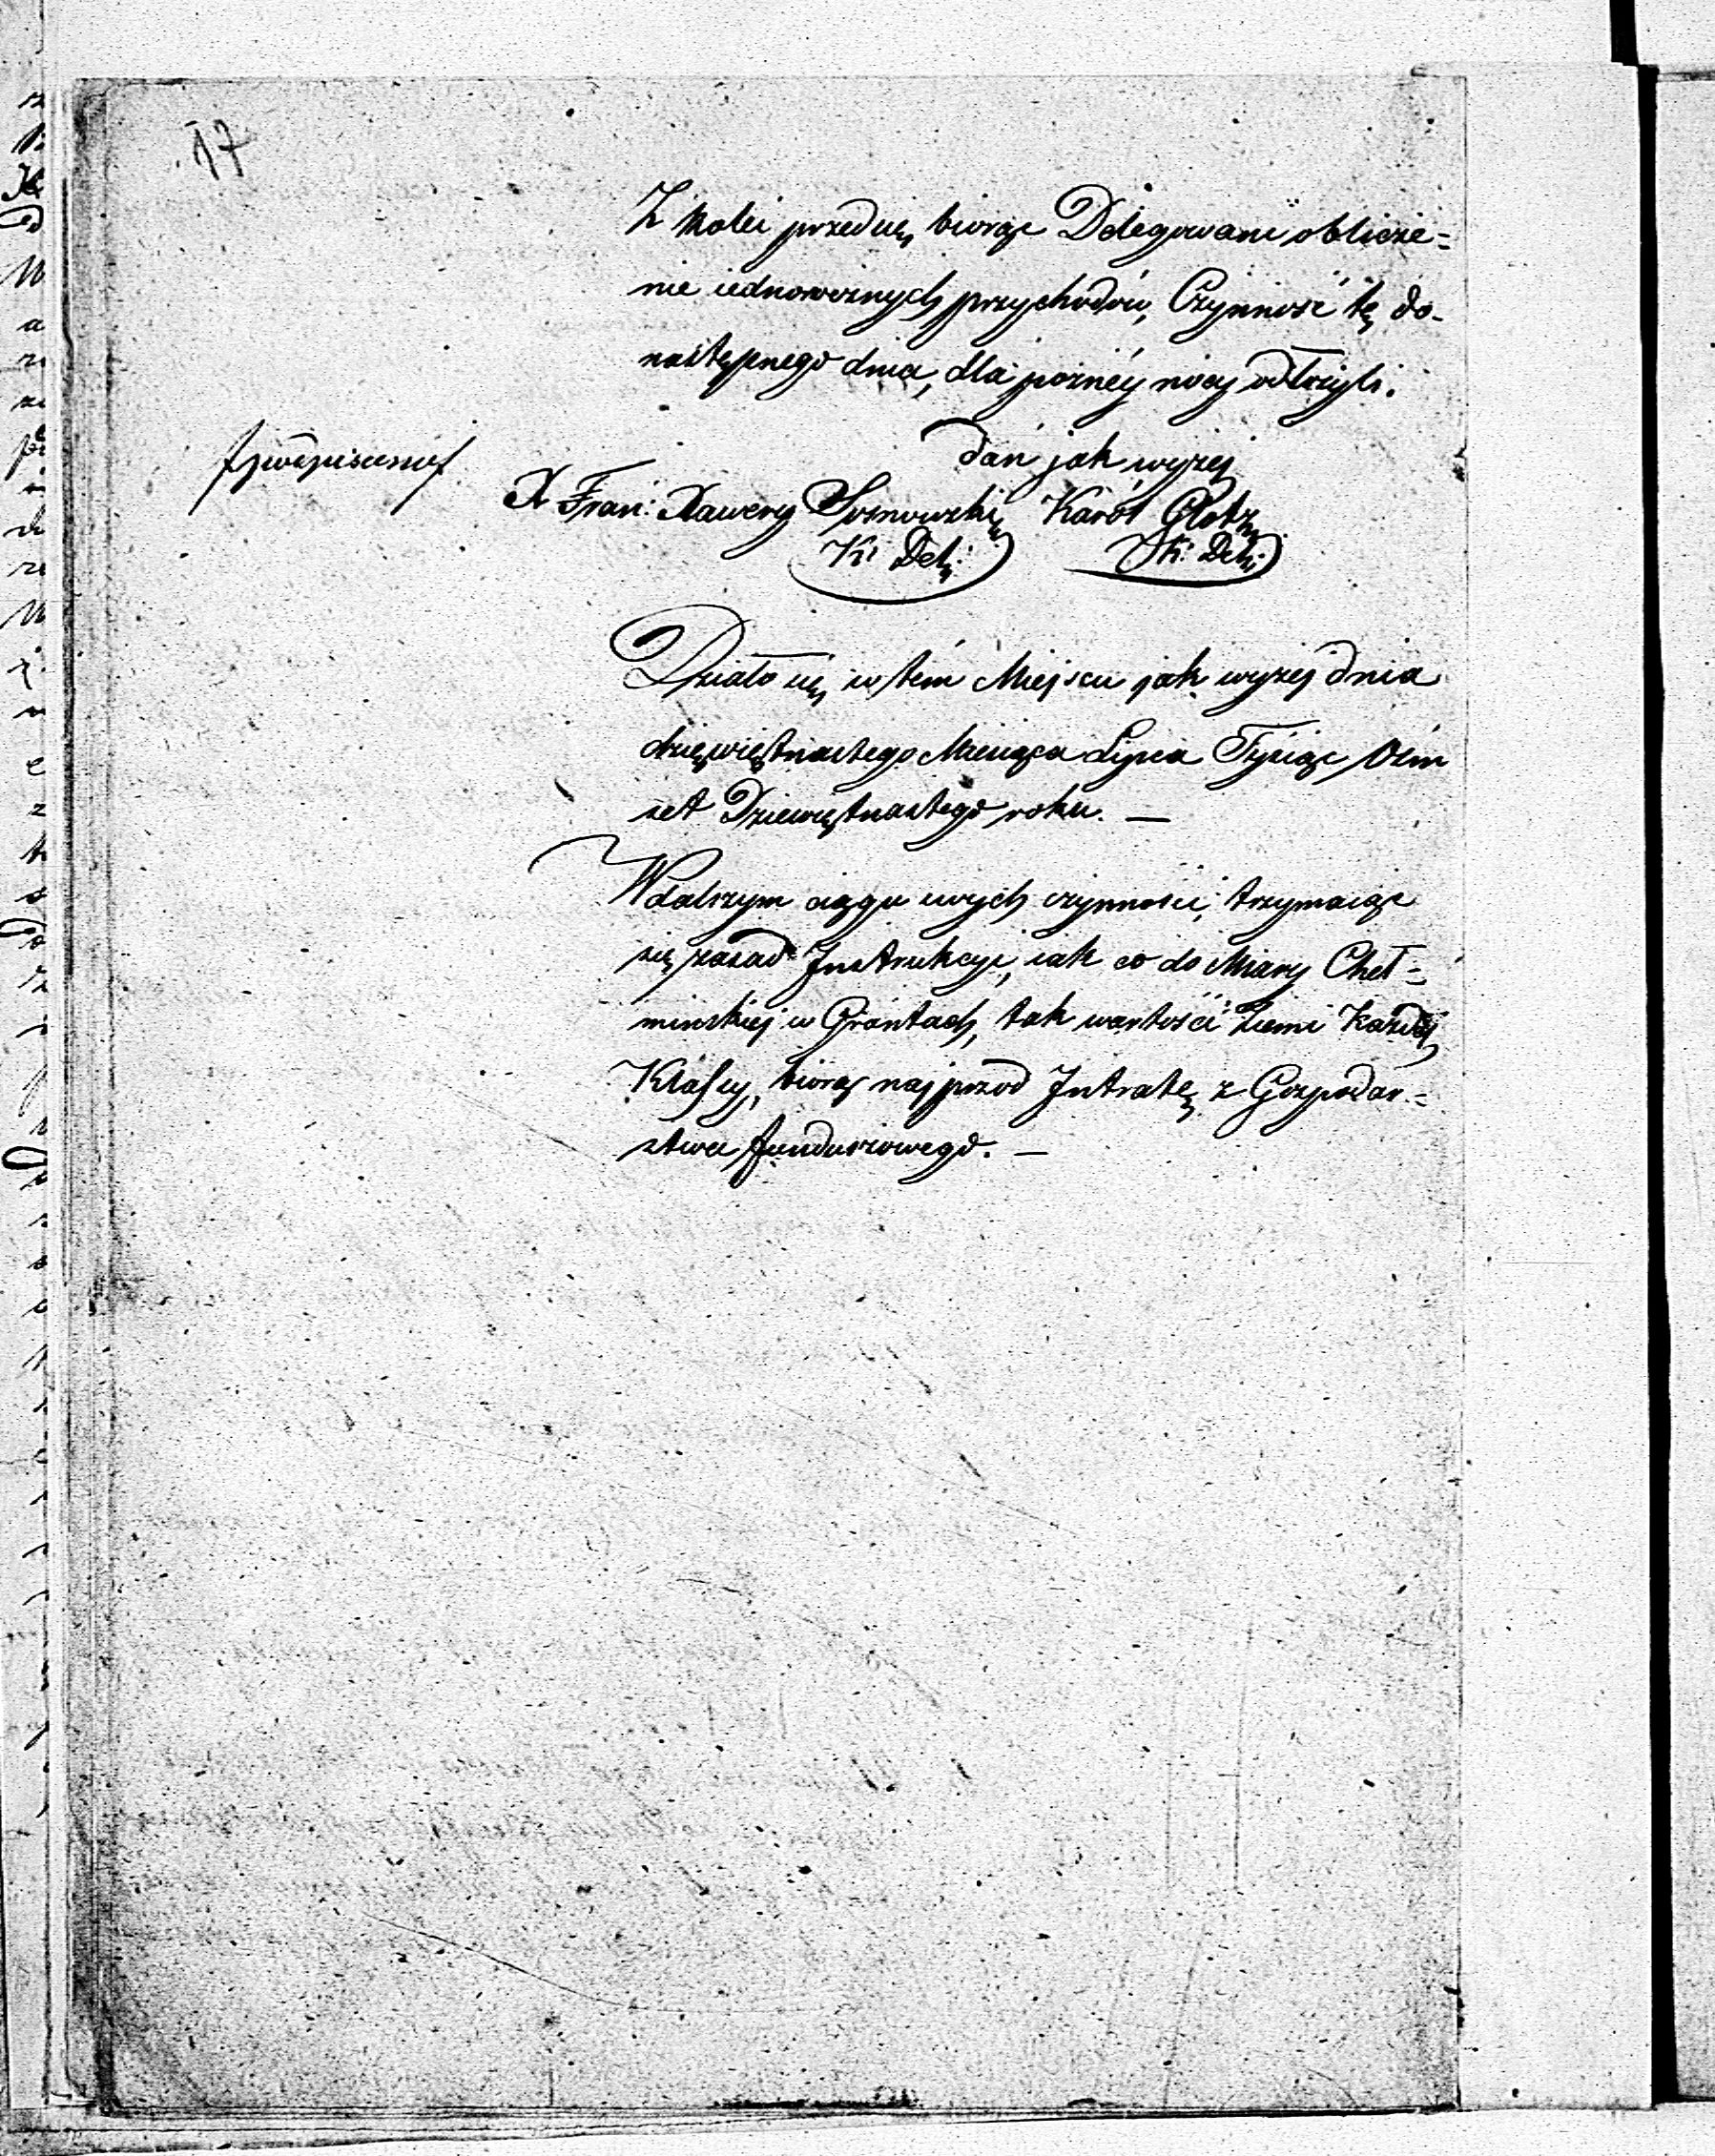 17
Z Kolei przedsię biorąc Delegowani oblicze=
nie iednorocznych przychodów, Czynność tę do-
następnego dnia, dla poźnéy nocy odłożyli.
dań jak wyżej
(podpisano)
X Fran: Xawery Sosnowski Karol Glotz
K: Del: K: Del:
Działo się w tém Miejscu jak wyżej dnia
dziewiętnastego Miesiąca Lipca Tysiąc Ośm
set Dziewiętnastego roku. —
W dalszym ciągu swych czynności, trzymaiąc
się zasad Instrukcyi, iak co do Miary Cheł=
mińskiej w Grontach, tak wartości Ziemi Każdej
Klassy, biorąc najprzod Intratę z Gospodar=
stwa funduszowego. —